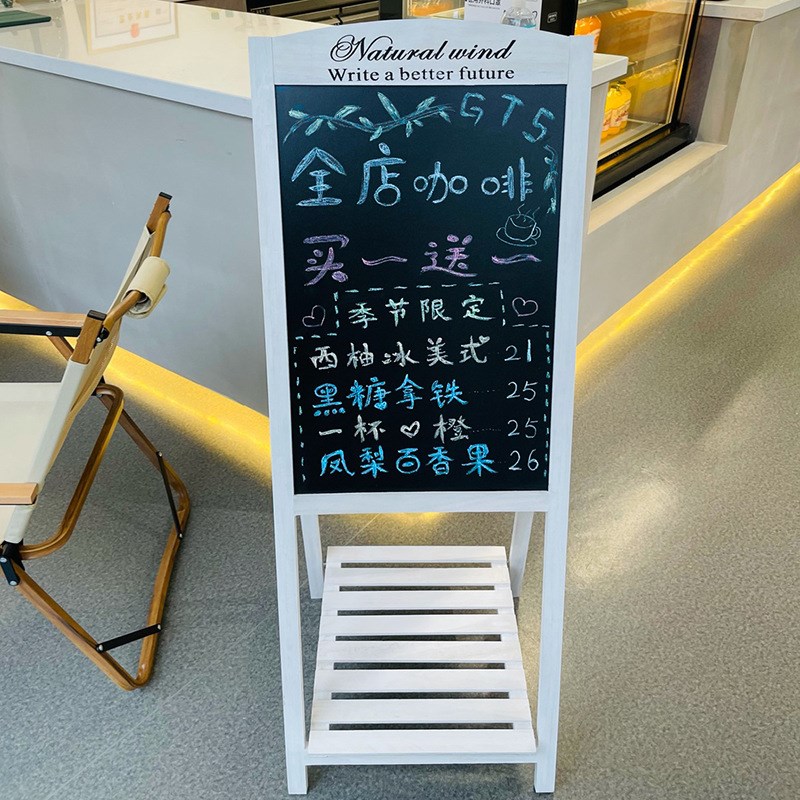 Natural wind
Write a better future
GTS
全店咖啡
买一送一
季节限定
西柚冰美式 21
黑糖拿铁 25
一杯♡橙 25
凤梨百香果 26